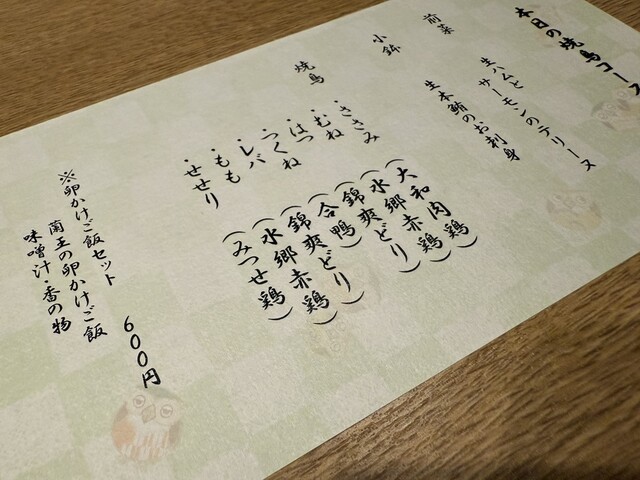 本日の焼鳥コース
前菜
生ハムと
サーモンのテリーヌ
小鉢
生本鮪のお刺身
焼鳥
・ささみ（大和肉鶏）
・むね（水郷赤鶏）
・はつ（錦爽どり）
・つくね（合鴨）
・レバ（錦爽どり）
・もも（水郷赤鶏）
・せせり（みつせ鶏）
※卵かけご飯セット 600円
蘭王の卵かけご飯
味噌汁・香の物